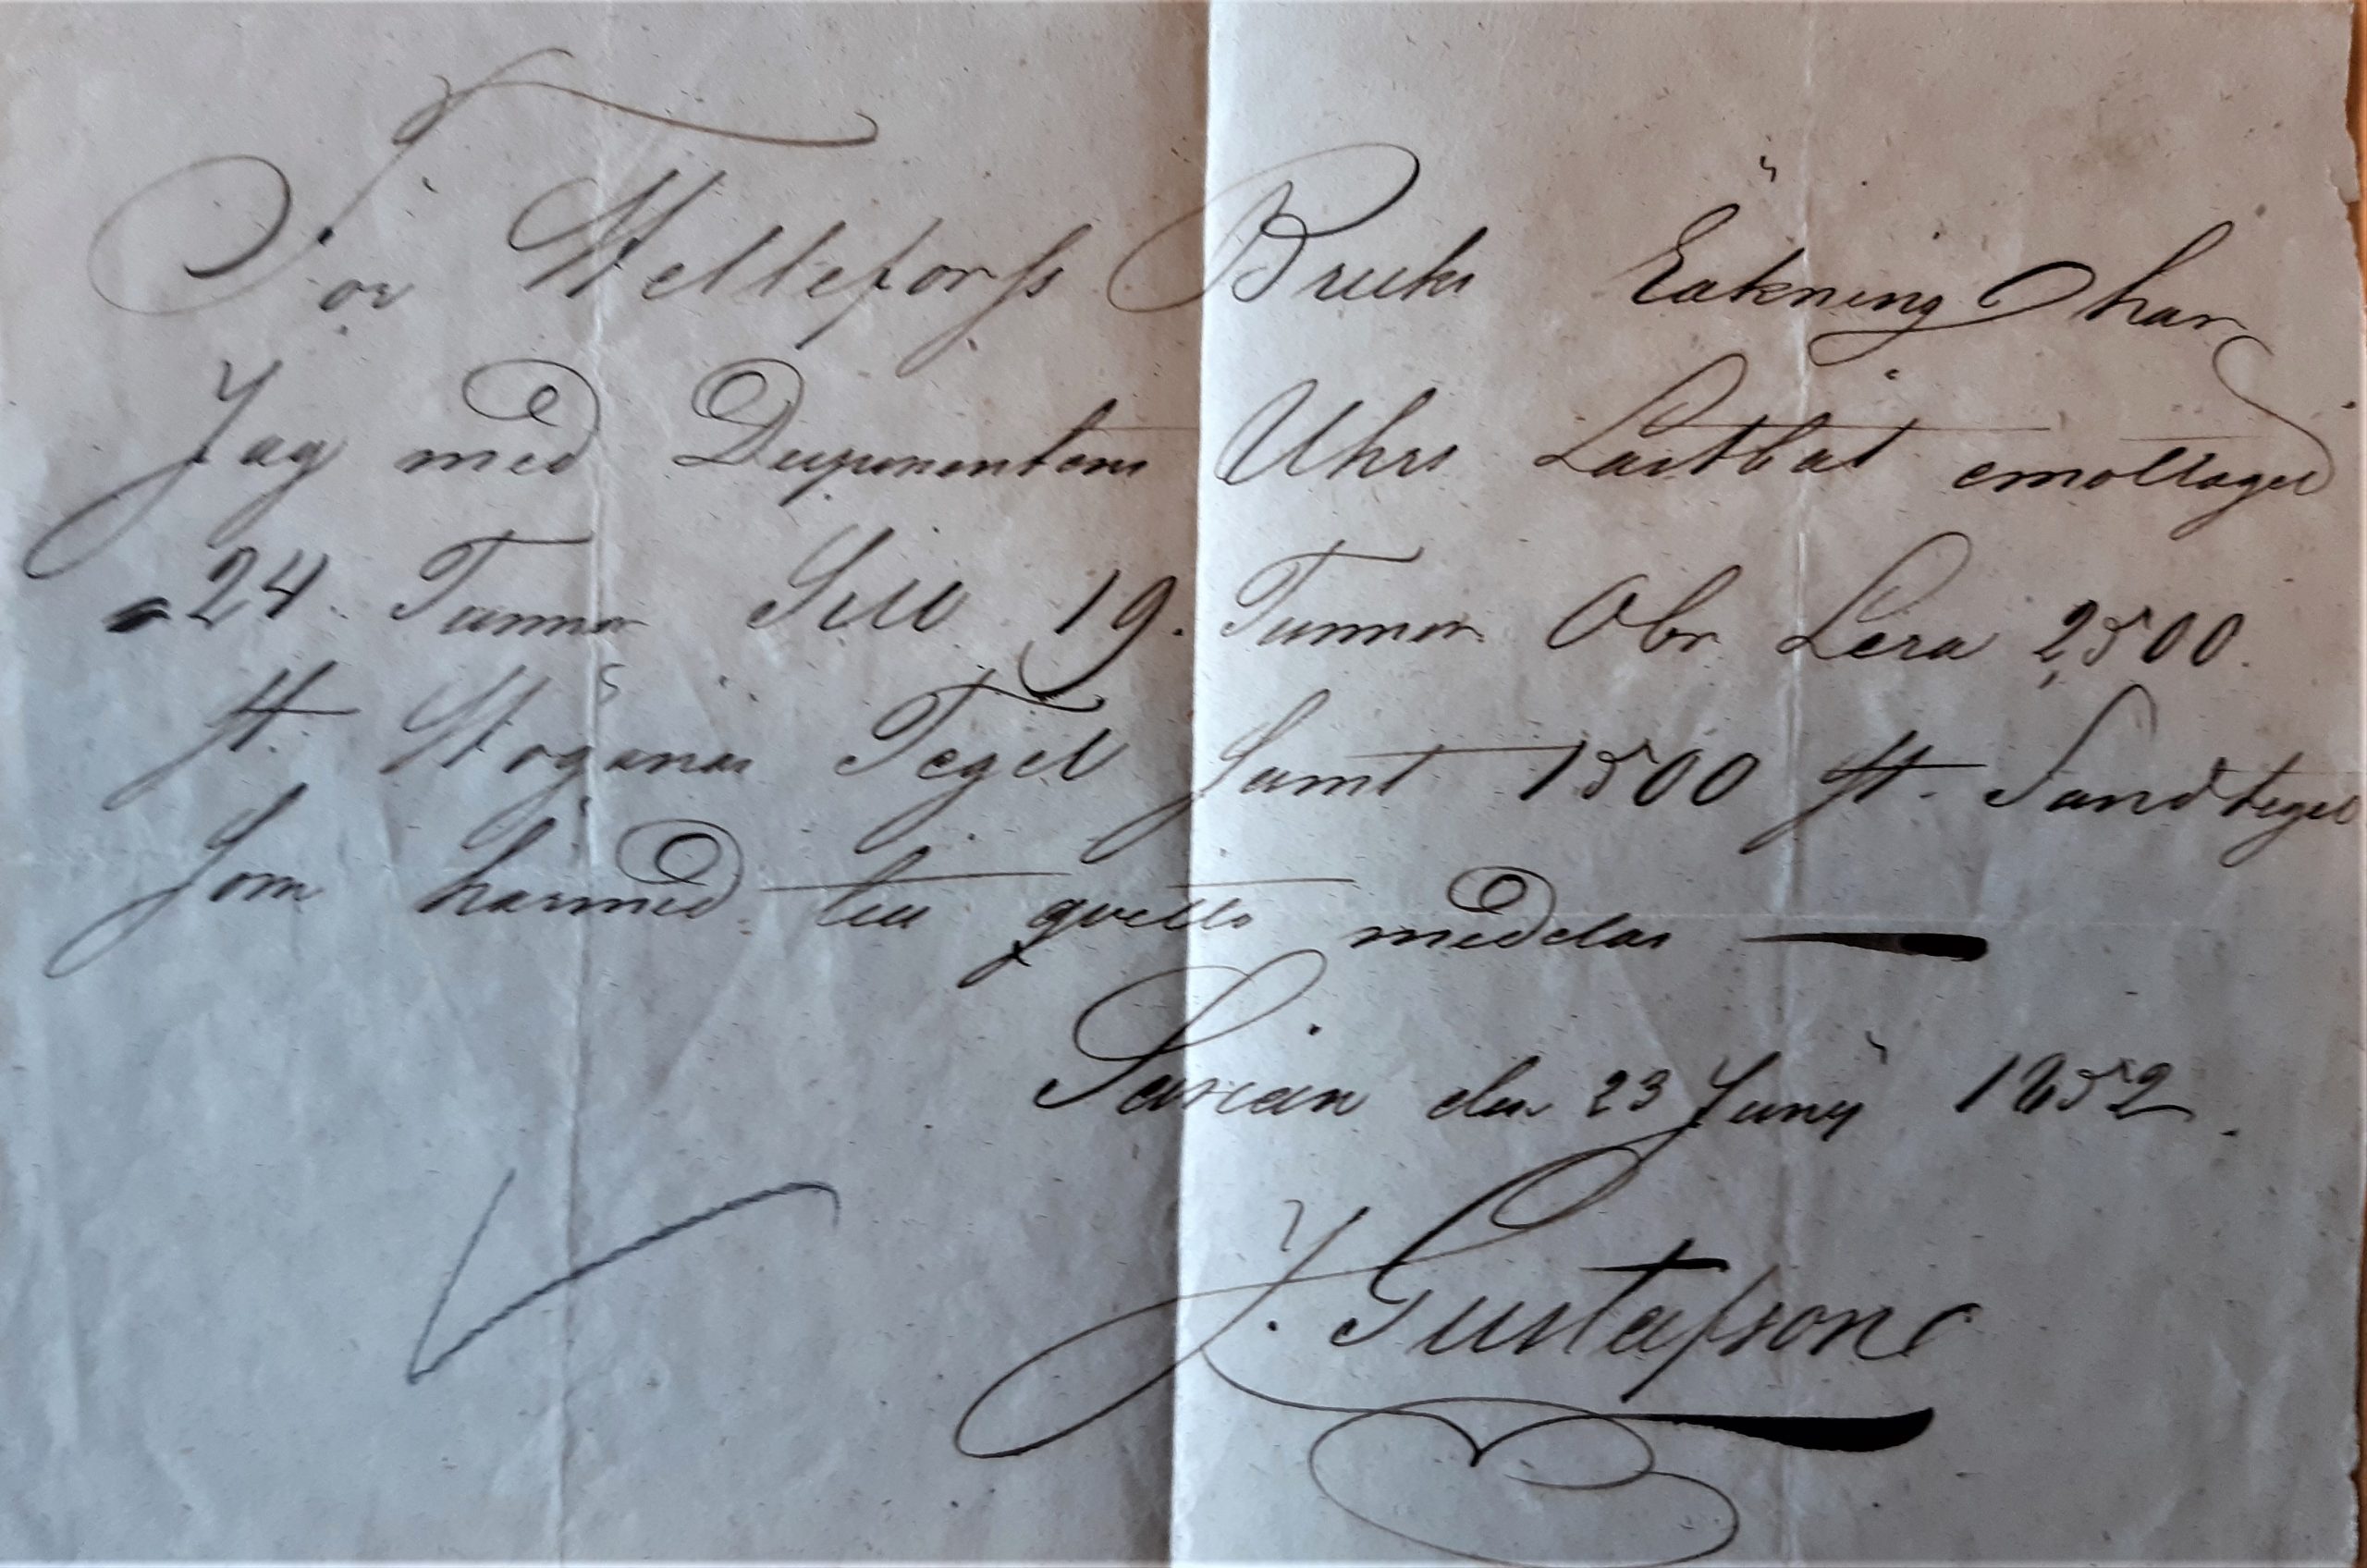 För Hellefors Bruks Räkning har
Jag med Disponentens Uhrs Lastbåt emottaget
24 Tunnor Sill 19. Tunnor Obr Lera 2,500.
st. Höganäs Tegel Samt 1500 st. Sandtegel
Som härmed till qvitto medelas
den 23 Junÿ 1852.
J. Gustafson